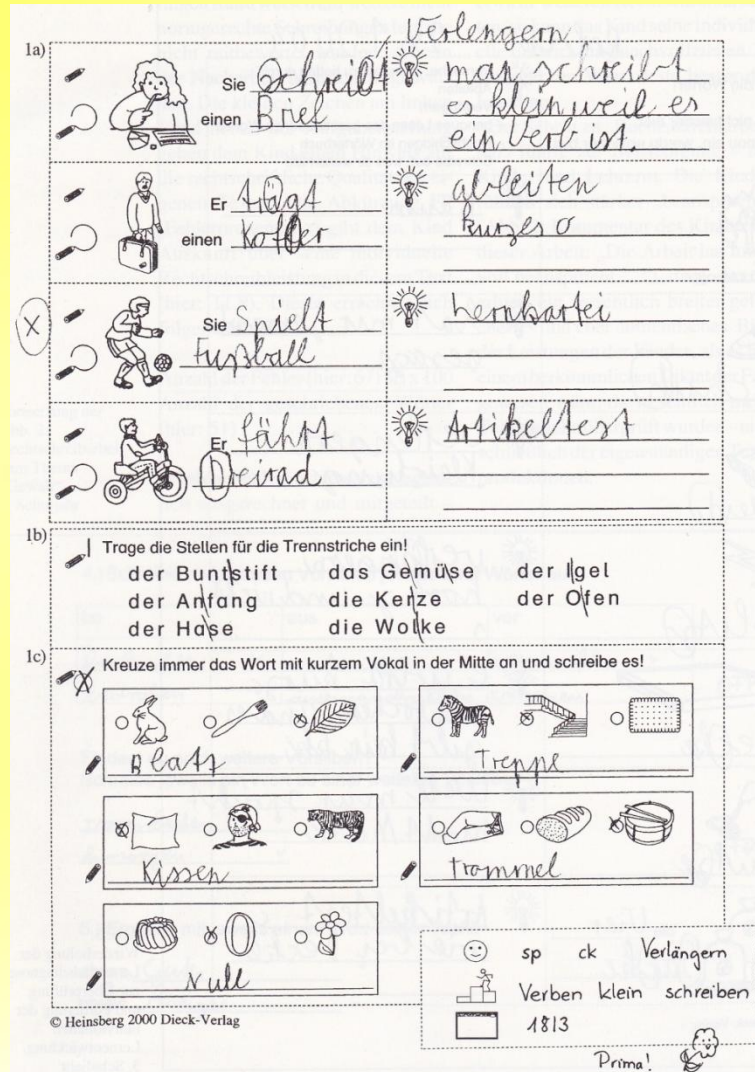 Verlengern
1a)
Sie Schreibt
einen Brief
man schreibt
es klein weil es
ein Verb ist.
Er trägt
einen Koffer
ableiten
kurzes o
X
Sie Spielt
Fußball
Lernkartei
Er fährt
Dreirad
Artikeltest
1b)
Trage die Stellen für die Trennstriche ein!
der Buntstift das Gemüse der Igel
der Anfang die Kerze der Ofen
der Hase die Wolke
1c)
Kreuze immer das Wort mit kurzem Vokal in der Mitte an und schreibe es!
Blatz
Treppe
Kissen
Trommel
Null
sp ck Verlängern
Verben klein schreiben
18/3
Prima!
© Heinsberg 2000 Dieck-Verlag